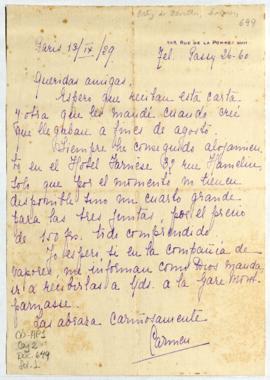 699
París 13/IX/29
Tel. Passy 26-60
Queridas amigas.
Espero que reciban esta carta
y otra que les mandé cuando creí
que llegaban a fines de agosto.
Siempre he conseguido alojamien
to en el Hotel Farnèse 32 rue Hamelin,
solo que por el momento no tienen
disponible sino un cuarto grande
para las tres juntas, por el precio
de 100 fr. todo comprendido
Yo espero, si en la compañía de
vapores me informan como Dios manda
ir a recibirlas a Uds. a la Gare Mont
parnasse.
Las abraza cariñosamente
Carmen
699